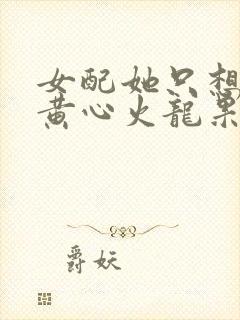 女配她只想
黄心火龍果
爵妖